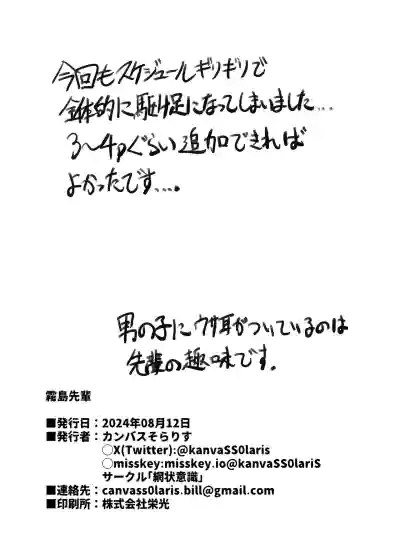 今回もスケジュールギリギリで
全体的に駆け足になってしまいました...
3〜4pぐらい追加できれば
よかったです....
男の子にウサ耳がついているのは
先輩の趣味です.
霧島先輩
■発行日：2024年08月12日
■発行者：カンバスそらりす
○X(Twitter):@kanvaSS0laris
○misskey:misskey.io@kanvaSS0lariS
サークル｢網状意識｣
■連絡先：canvass0laris.bill@gmail.com
■印刷所：株式会社栄光